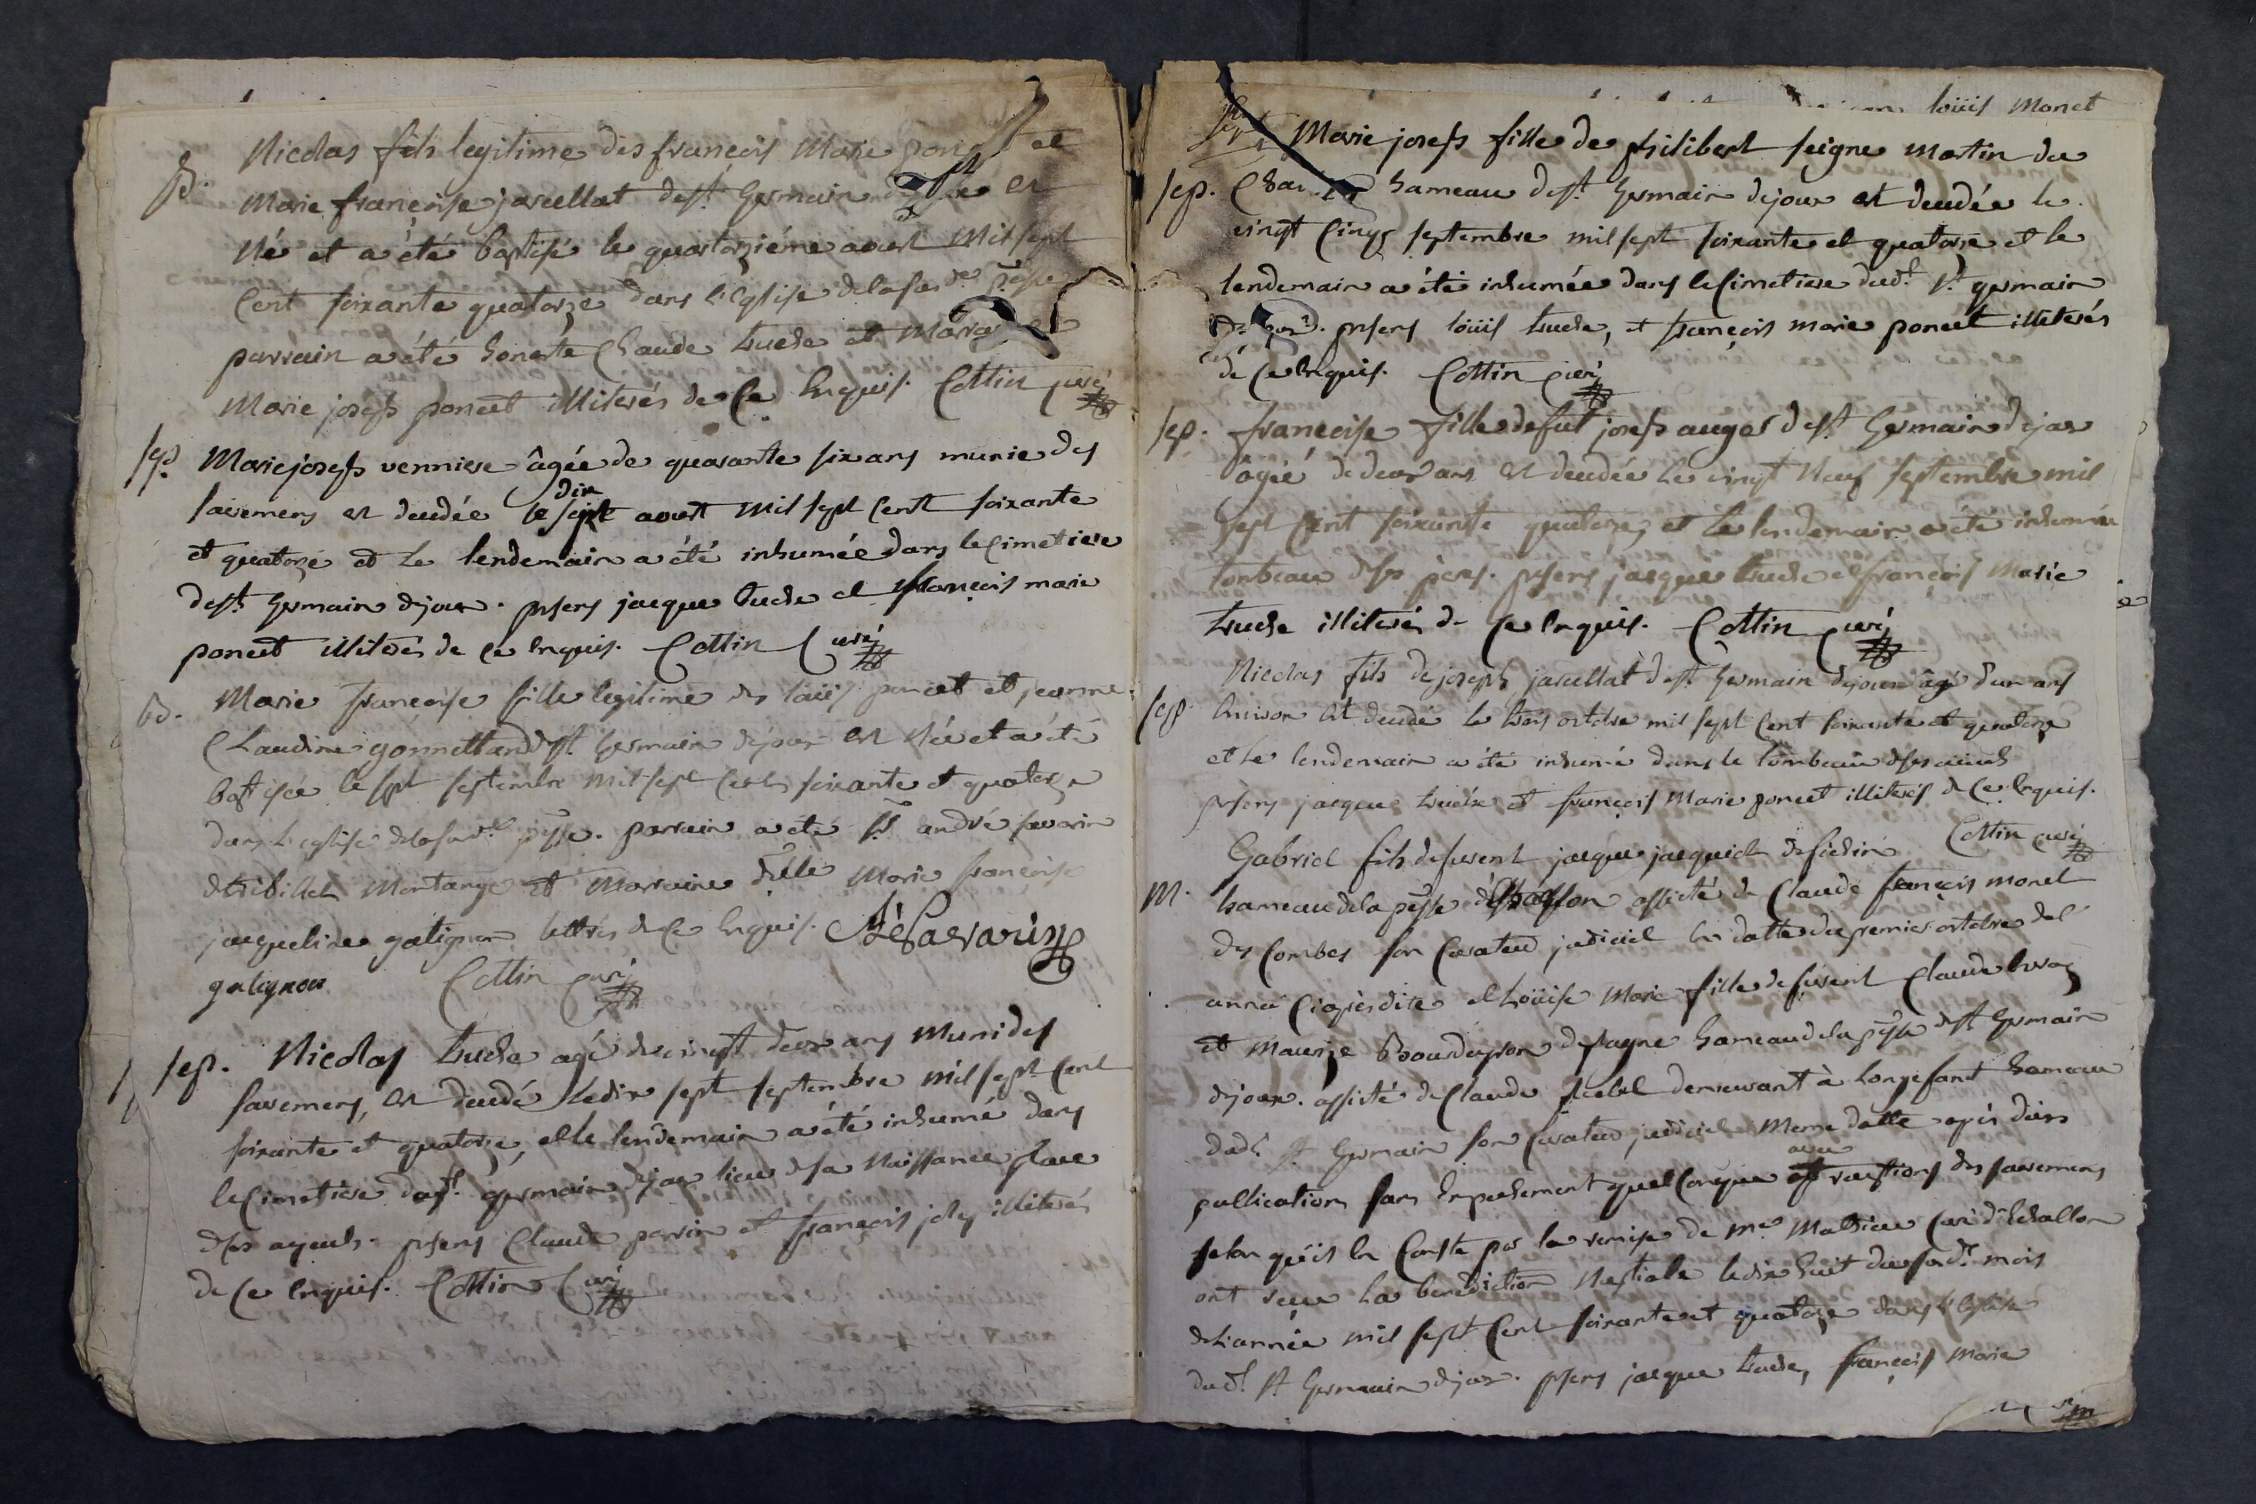 B. Nicolas fils legitime des françois Marie poncet et
Marie françoise jarcellat de St. Germain de joux est
Né et a été baptisé le quatorziéme aoust Mil sept
Cent soixante quatorze dans l'Eglise de la susde. psse
parrain a été honeste Claude tuche et Maraine
Marie joseph poncet illiterés de Ce Enquis. Cottin curé
sep. Marie joseph verniere âgée de quarante six ans munie des
sacremens est decedée le dix sept aoust Mil sept Cent soixante
et quatorze et le lendemain a été inhumée dans le Cimetiere
de St. Germain de joux. prsens jacque tuche et françois marie
poncet illiterés de Ce Enquis. Cottin Curé
b. Marie françoise fille legitime des loüis poncet et jeanne
Claudine gonnettand de St. Germain de joux est Née et a été
baptisée le sept septembre Mil sept Cent soixante et quatorze
dans l'eglise de la susde. psse. parrain a été Sr. andré savarin
de Montange et Marraine delle Marie françoise
jacqueline galignon lettrés de Ce Enquis. Savarin
galignon Cottin curé
sep. Nicolas tuche agé de vingt deux ans Muni des
sacremens, est decedé le dix sept septembre Mil sept Cent
soixante et quatorze, et le lendemain a été inhumé dans
le Cimetiere dudt. St. germain de joux lieu de sa Naissance place
de ses ayeuls. prsens Claude perrin et françois joly illiterés
de Ce Enquis. Cottin Curé
loüis Monet
Marie joseph fille de philibert seigne martin du
sep. hameau de St. Germain de joux est decedée le
vingt Cinq septembre mil sept soixante et quatorze et le
lendemain a été inhumée dans le Cimetiere dudt. St. germain
de joux. prsens loüis tuche, et françois marie poncet illiterés
de Ce Enquis. Cottin curé
sep. francoise fille de fut joseph auger de St. Germain de joux
âgée de deux ans est decedée le vingt Neuf septembre mil
sept Cent soixante quatorze et le lendemain a été inhumée
tombeau de ses peres. prsens jacque tuche et françois Marie
tuche illiterés de Ce Enquis. Cottin curé
Nicolas fils de joseph jarcellat de St. Germain de joux âgé d'un ans
sep. Environ est decedé le trois octobre mil sept Cent soixante et quatorze
et le lendemain a été inhumé dans le tombeau de ses aïeuls
prsens jacque tuche et françois Marie poncet illiterés de Ce Enquis.
Cottin curé
Gabriel fils de fuent jacque jacquiet
M. hameau de la psse d'Echallon assisté de Claude françois monet
des Combes son Curateur judiciel en datte du premier octobre del
année Ci aprèsdite et Loüise Marie fille de fuent Claude
et Maurize hameau de la psse de St Germain
de joux. assisté de Claude demeurant à Longefand hameau
dudt. St Germain son Curateur judiciel Meme datte après deux
publications sans Enpechement quelConque avec des sacremens
selon qu'il En Conste par la remise de Mre Mathieu Curé d'Echallon
ont reçue la benediction Nuptiale le dix huit du susdt. mois
de l'année mil sept Cent soixante et quatorze dans l'Eglise
dudt. St Germain de joux. prsens jacque tuche, françois Marie